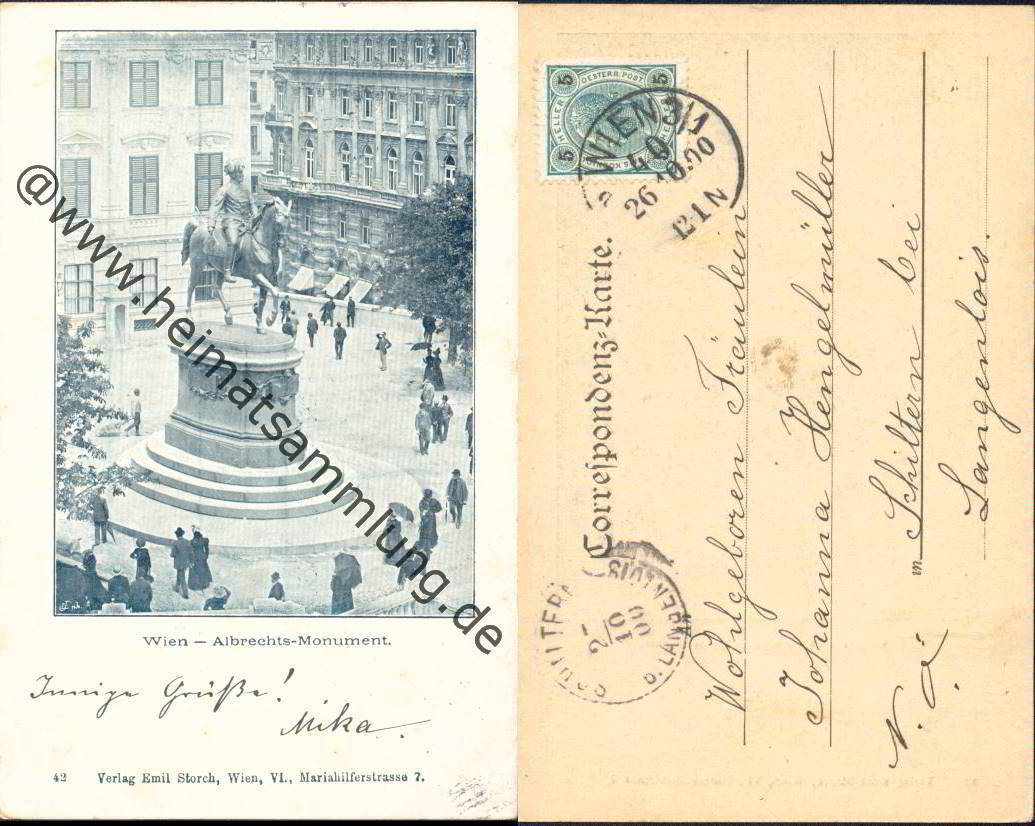 @www.heimatsammlung.de
Wien — Albrechts-Monument.
Innige Grüße!
Mika.
42 Verlag Emil Storch, Wien, VI., Mariahilferstrasse 7.
5 OESTERR. POST. 5
HELLER HELLER
5
WIEN 3/1
40
26 10.00
a 12-1 N
Correspondenz-Karte.
SCHILTERN
2-
10
00
B. LANGENLOIS
Wohlgeboren Fräulein
Johanna Hengelmüller
in Schiltern bei
Langenlois.
N. Ö.